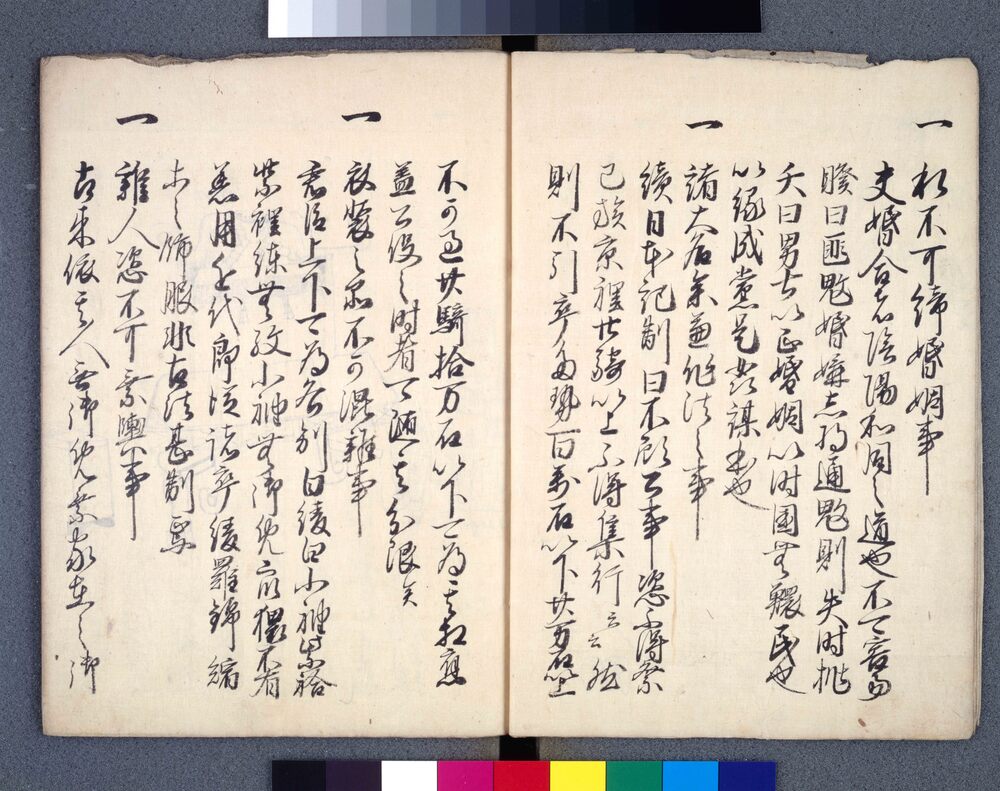 一 私不可締婚姻事
夫婚合者陰陽和同之道也不可容易
睽曰匪冦婚媾志将通冦則失時桃
夭曰男女以正婚姻以時国無鰥民也
以縁成党是姦謀本也
一 諸大名参覲作法之事
続日本記制曰不顧公事恣不得集
己族京裡廿騎以上不得集行云云然
則不引卒多勢百万石以下廿万石以上
不可過廿騎拾万石以下可為其相應
蓋公役之時者可随其分限矣
一 衣裳之品不可混雑事
君臣上下可為各別白綾白小袖紫袷
紫裡練無紋小袖無御免衆猥不有
着用近代郎従諸卒綾羅錦繍
等之飾服非古法甚制焉
一 雑人恣不可乗輿事
古来依其人無御免乗家在之御